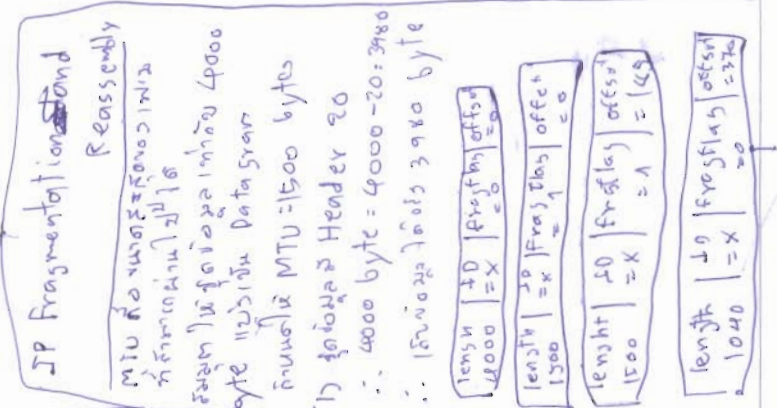 IP Fragmentation and
Reassembly
MTU คือ ขนาดใหญ่สุดของเฟรม
ที่สามารถผ่านไปได้
สมมุติให้ชุดข้อมูลเท่ากับ 4000
byte แบ่งเป็น Datagram
กำหนดให้ MTU = 1500 bytes
1) ชุดข้อมูลมี Header 20
∴ 4000 byte = 4000-20 = 3980
∴ เก็บข้อมูลได้จริง 3980 byte
length 4000 | ID =X | fragflag =0 | offset =0
length 1500 | ID =X | fragflag = 1 | offset =0
lenght 1500 | ID =X | fragflag = 1 | offset =
length 1040 | ID =X | fragflag =0 | offset =370